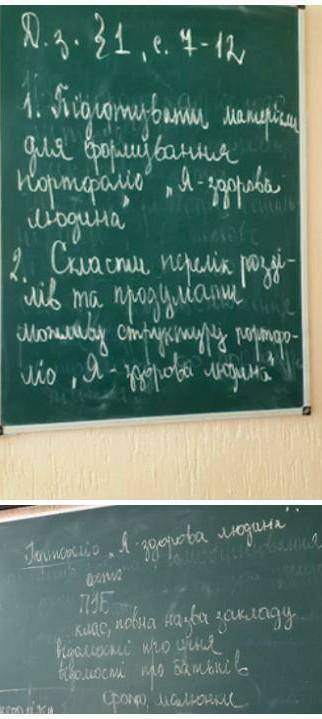 Д. з. §1, с. 7-12
1. Підготувати матеріали
для формування
портфоліо „Я-здорова
людина"
2. Скласти перелік розді-
лів та продумати
можливу структуру портфо-
ліо „Я-здорова людина"
Портфоліо „Я-здорова людина"
ПІБ
клас, повна назва закладу
відомості про учня
відомості про батьків
фото, малюнки